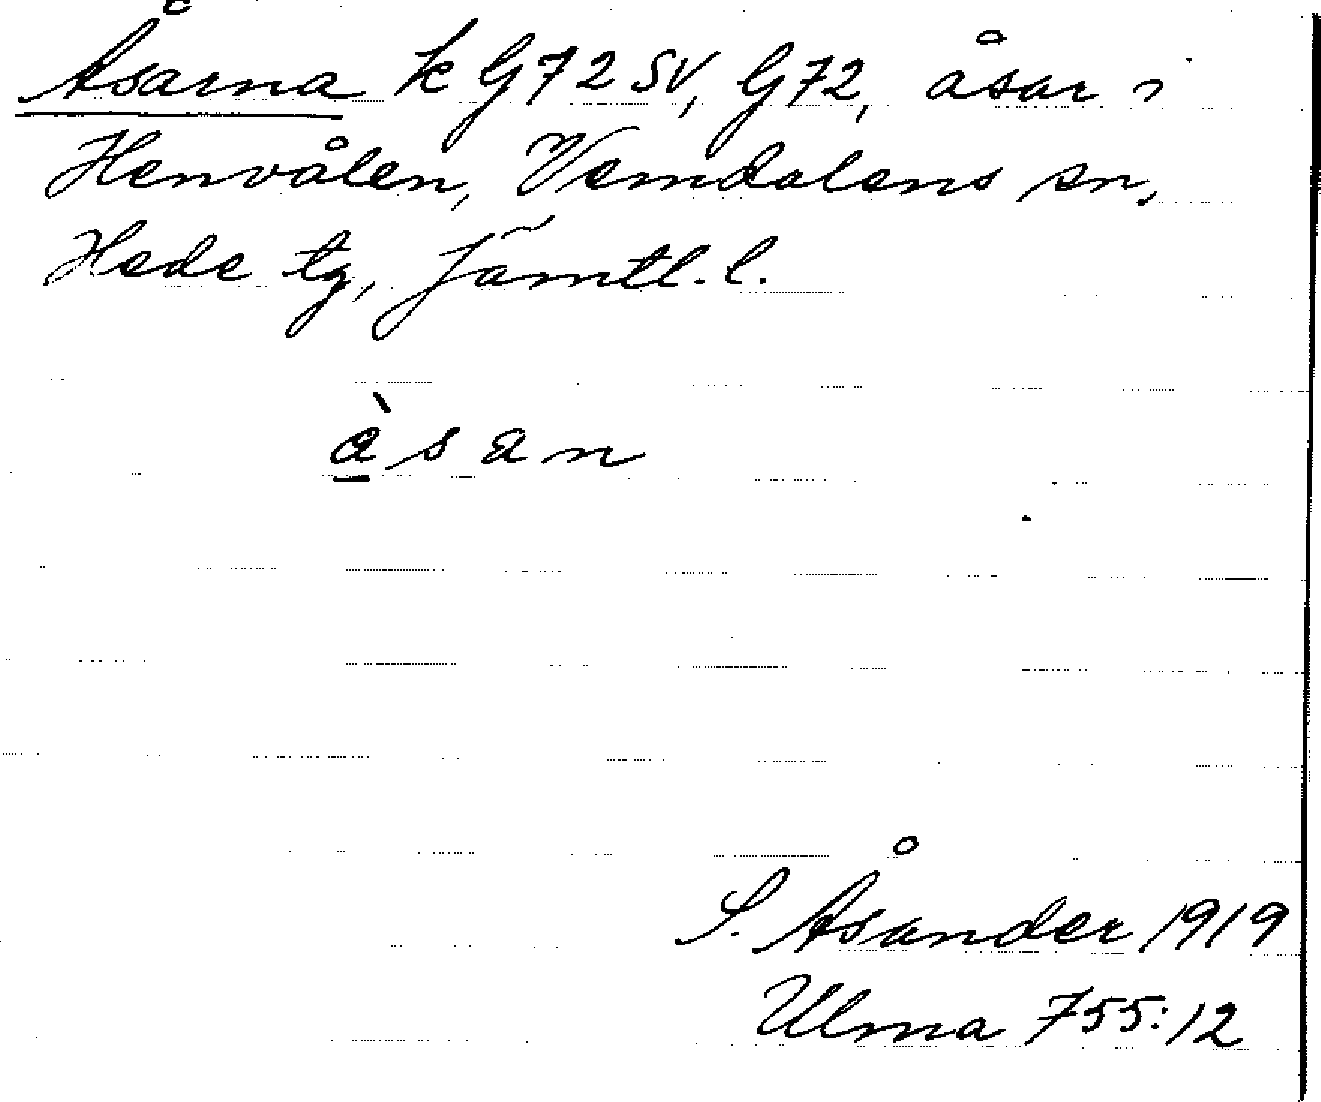 Åsarna k G72SV, G72, åsar i
Henvålen, Vemdalens sn,
Hede tg, Jämtl. l.
à̲ s a n
S. Åsander 1919
Ulma 755:12